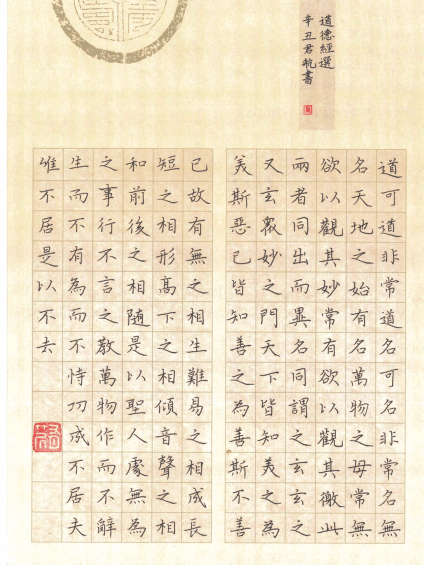 道德經選
辛丑君航書
道可道非常道名可名非常名無
名天地之始有名萬物之母常無
欲以觀其妙常有欲以觀其徼此
兩者同出而異名同謂之玄玄之
又玄眾妙之門天下皆知美之為
美斯惡已皆知善之為善斯不善
已故有無之相生難易之相成長
短之相形髙下之相傾音聲之相
和前後之相隨是以聖人處無為
之事行不言之教萬物作而不辭
生而不有為而不恃功成不居夫
唯不居是以不去